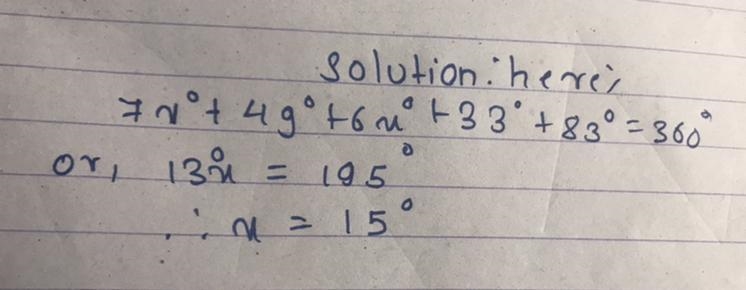 Solution: here,
7x° + 49° + 6x° + 33° + 83° = 360°
or, 13°x = 195°
∴ x = 15°